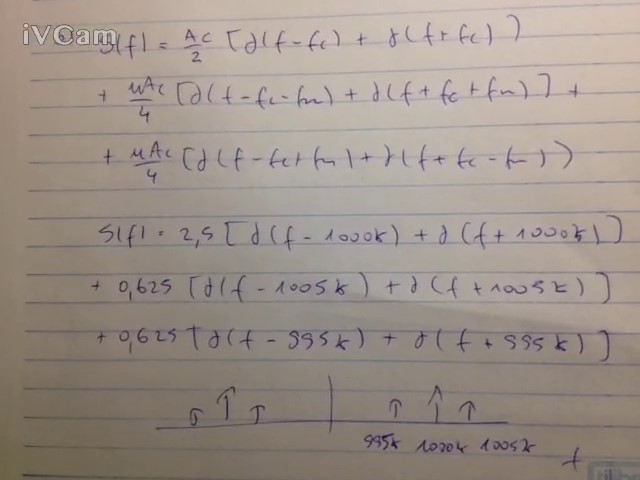 iVCam
S(f) = Ac/2 [∂(f-fc) + ∂(f+fc)]
+ μAc/4 [∂(f-fc-fm) + ∂(f+fc+fm)] +
+ μAc/4 [∂(f-fc+fm) + ∂(f+fc-fm)]
S(f) = 2,5 [∂(f-1000k) + ∂(f+1000k)]
+ 0,625 [∂(f-1005k) + ∂(f+1005k)]
+ 0,625 [∂(f-995k) + ∂(f+995k)]
995k 1000k 1005k
f